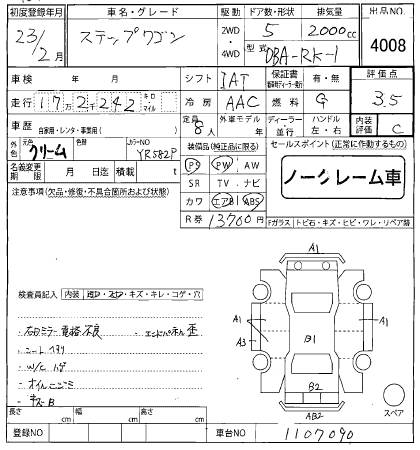 初度登録年月 車名・グレード 駆動 ドア数・形状 排気量 出品NO.
23/2月 ステップワゴン 2WD・4WD 5 2000cc 4008
型式 DBA-RK-1
車検 年 月 シフト IAT 保証書 有・無 評価点
走行 17万2千242 キロ・マイル 冷房 AAC 燃料 G 3.5
車歴 自家用・レンタ・事業用( ) 定員 8人 外車モデル 年 ディーラー・並行 ハンドル 左・右 内装評価 C
外色 元色 クリーム 色替 カラーNO YR582P 装備品(純正品に限る) セールスポイント(正常に作動するもの)
名義変更期限 月 日迄 積載 t PS PW AW
SR TV ナビ
ノークレーム車
注意事項(欠品・修復・不具合箇所および状態) カワ エアB ABS
R券 13700円
Fガラス トビ石・キズ・ヒビ・ワレ・リペア跡
検査員記入 内装 キズ・キレ・コゲ・穴
・右ドミラー電格不良 ・エンドパネル歪
・シートヨゴレ
・W/Cハゲ
・オイルニジミ
・キズB
A1
A1
A3
B1
A1
B2
AB2
スペア
長さ cm 幅 cm 高さ cm
登録NO 車台NO 1107090